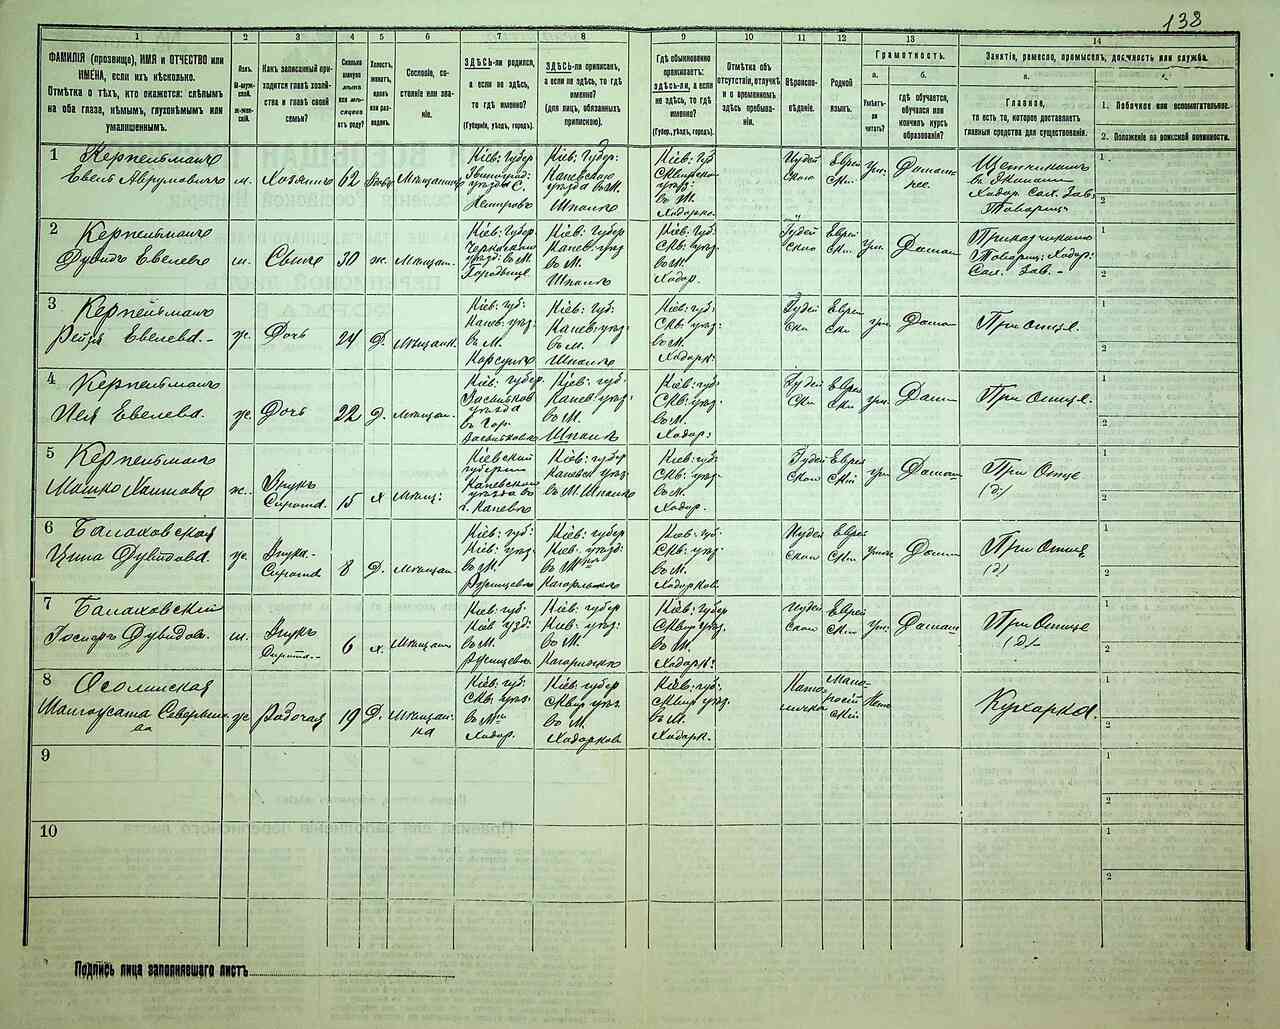 138
1
2
3
4
5
6
7
8
9
10
11
12
13
14
ФАМИЛІЯ (прозвище), ИМЯ и ОТЧЕСТВО или
ИМЕНА, если ихъ нѣсколько.
Отмѣтка о тѣхъ, кто окажется: слѣпымъ
на оба глаза, нѣмымъ, глухонѣмымъ или
умалишеннымъ.
Полъ.
М-муж-
ской.
Ж-жен-
скій.
Какъ записанный при-
ходится главѣ хозяй-
ства и главѣ своей
семьи?
Сколько
минуло
лѣтъ
отъ роду?
Холостъ,
женатъ,
вдовъ
или раз-
веденъ.
Сословіе, со-
стояніе или зва-
ніе.
ЗДѢСЬ-ли родился,
а если не здѣсь,
то гдѣ именно?
(Губернія, уѣздъ, городъ).
ЗДѢСЬ-ли приписанъ,
а если не здѣсь, то гдѣ
именно?
(для лицъ, обязанныхъ
припискою).
Гдѣ обыкновенно
проживаетъ:
ЗДѢСЬ-ли, а если
не здѣсь, то гдѣ
именно?
(Губер., уѣздъ, городъ).
Отмѣтка объ
отсутствіи, отлучкѣ
и о временномъ
здѣсь пребыва-
ніи.
Вѣроиспо-
вѣданіе.
Родной
языкъ.
Грамотность.
а.
Умѣетъ-
ли
читать?
б.
гдѣ обучается,
обучался или
кончилъ курсъ
образованія?
Занятіе, ремесло, промыселъ, должность или служба.
а.
Главное,
то есть то, которое доставляетъ
главныя средства для существованія.
1. Побочное или вспомогательное.
2. Положеніе по воинской повинности.
1 Керпельманъ
Евель Аврумовичъ м. Хозяинъ 62 Мѣщанинъ
Кіев: губер
Звиногород:
уѣзда с.
Кіев: Губер:
Каневскаго
уѣзда въ М.
Шполо
Кіев: Губ
Сквирско
уѣз:
въ М.
Ходорко.
Іудей
ского
Еврей
скій
Домаш
нее.
Ходор. Сах. Зав.
Товарищ.
1
2
2 Керпельманъ
Дувидъ Евелевъ м. Сынъ 30 ж. Мѣщан.
Кіев: Губер.
Черкаскаго
уѣзд: въ М.
Городище
Кіев: Губер
Канев: уѣз
въ М.
Шполо
Кіев: Губ
Скв: уѣз.
въ М.
Ходор.
Іудей
ского
Еврей
ск.
Домаш
Прикащикъ
Товарищ: Ходор:
Сах. Зав. -
1
2
3 Керпельманъ
Рейзя Евелева. - ж. Дочь 24 Д. Мѣщан.
Кіев: Губ:
Канев: уѣз:
въ М.
Корсунь
Кіев: Губ.
Канев: уѣз:
въ М.
Шполо
Кіев: губ:
Скв: уѣз.
въ М.
Ходорк:
Іудей
ск
Еврей
ск:
Домаш
При отце.
1
2
4 Керпельманъ
Лея Евелева. ж. Дочь 22 Д. Мѣщан.
Кіев: Губер.
Васильков
уѣзда
въ Гор.
Васильковъ
Кіев: губ:
Канев: уѣз:
въ М.
Шполо
Кіев: губ:
Скв: уѣз:
въ М.
Ходор:
Іудей
ск
Еврей
ск
Дом
При Отце.
1
2
5 Керпельманъ
Мошко Хаимовъ Внукъ
Сирота. 15 Х Мѣщ:
Кіевской
губерни
Каневскаго
уѣзда въ
г. Каневъ
Кіев: губ:
Канев уѣз:
въ М. Шполо
Кіев: губ:
Скв: уѣз:
въ М.
Ходор.
Іудей
ског
Еврей
скій
Домаш
При Отце
(д.)
1
2
6 Балаховская
Цина Дувидова. ж. Внука.-
Сирота 8 Д. Мѣщан
Кіев: губ:
Кіев: уѣз:
въ М.
Ржищевъ
Кіев: губер
Кіев. уѣзд:
въ М.
Кіев: губ:
Скв: уѣз:
въ М.
Ходорков.
Іудей
ског
Еврей
ск.
Домаш
При Отце
(д.)
1
2
7 Балаховскій
Дувидов. м. Внукъ
Сирота.- 6 х. Мѣщан
Кіев: губ:
Кіев уѣзд:
въ М.
Ржищевъ
Кіев: губер
Кіев: уѣз:
въ М.
Кіев: губер
Сквир уѣз.
въ М.
Ходорк:
Іудей
ског
Еврей
ск.
Домаш
При Отце
(д.)
1
2
8 Осолинская
ж Рабочая 19 Д. Мѣщан-
ка
Кіев: губ:
Скв: уѣз:
въ М
Ходор.
Кіев: губер
Сквир уѣз:
въ М.
Ходорков
Кіев: губ:
Сквир уѣз.
въ М.
Ходорк.
Като
личка
Мало
росій
скій
Кухарка.
1
2
9
1
2
10
1
2
Подпись лица заполнявшаго листъ